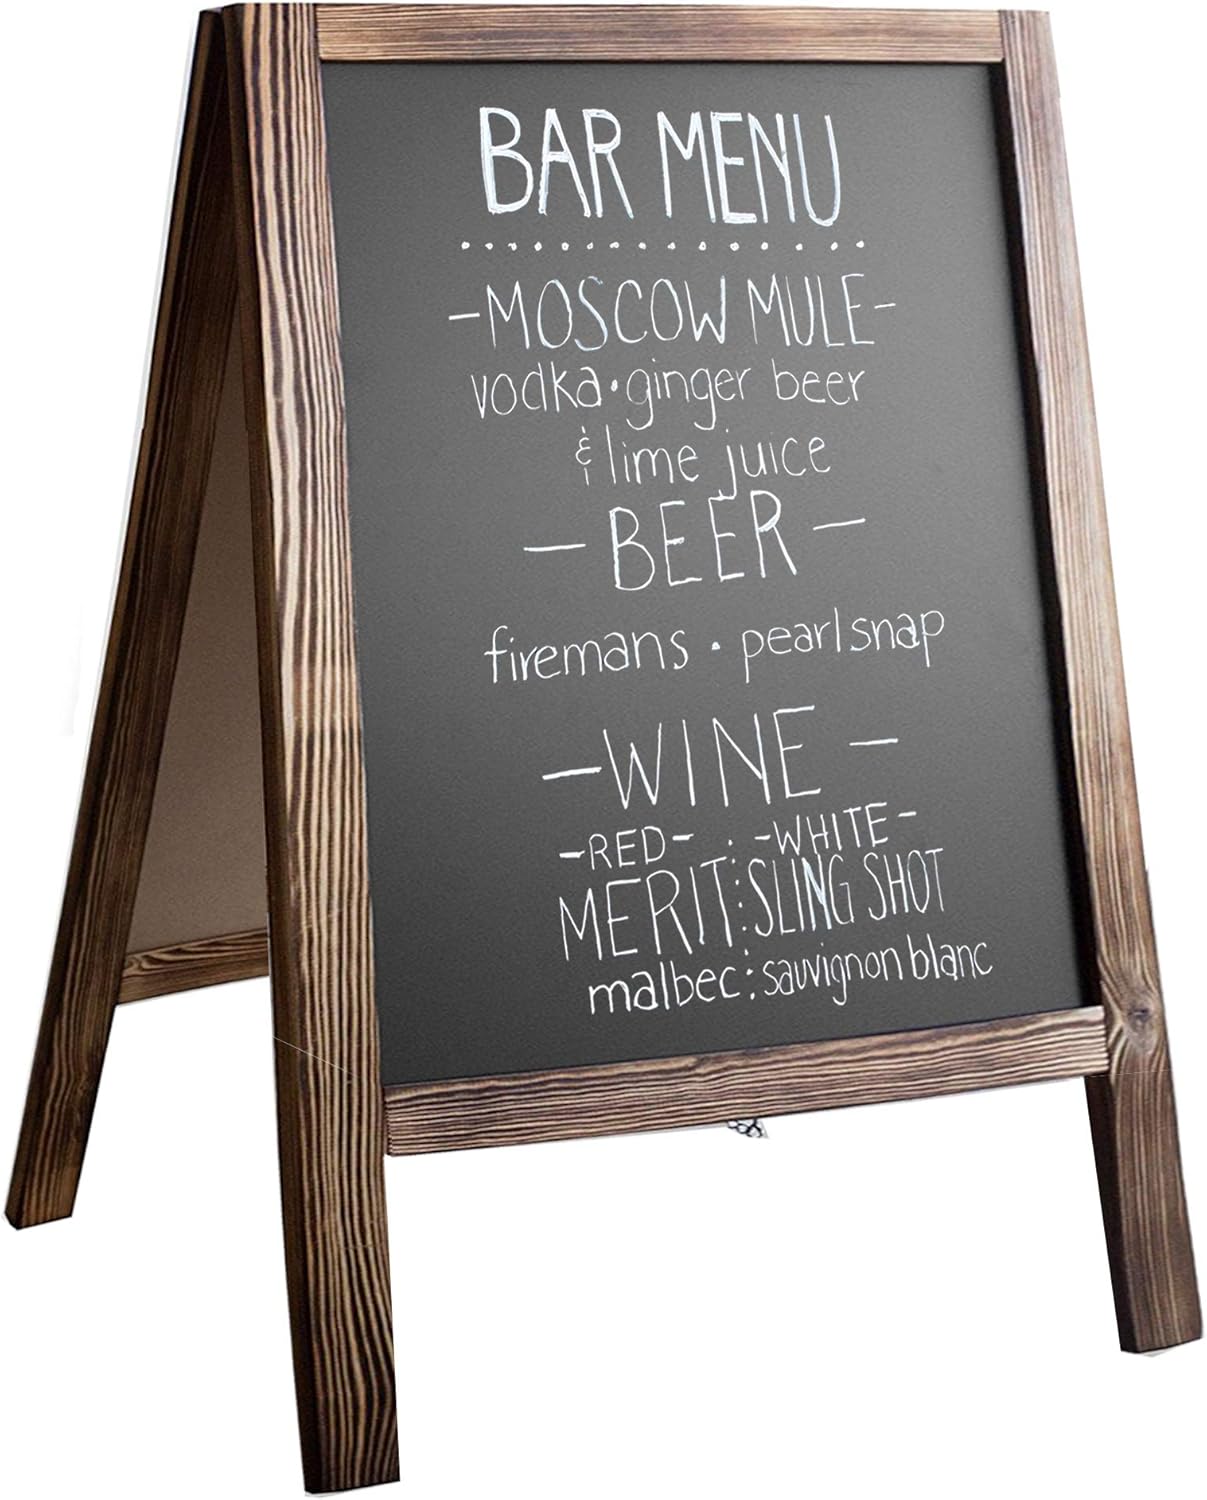 BAR MENU
-MOSCOW MULE-
vodka · ginger beer
& lime juice
- BEER -
firemans · pearl snap
- WINE -
-RED- : -WHITE-
MERIT : SLING SHOT
malbec : sauvignon blanc